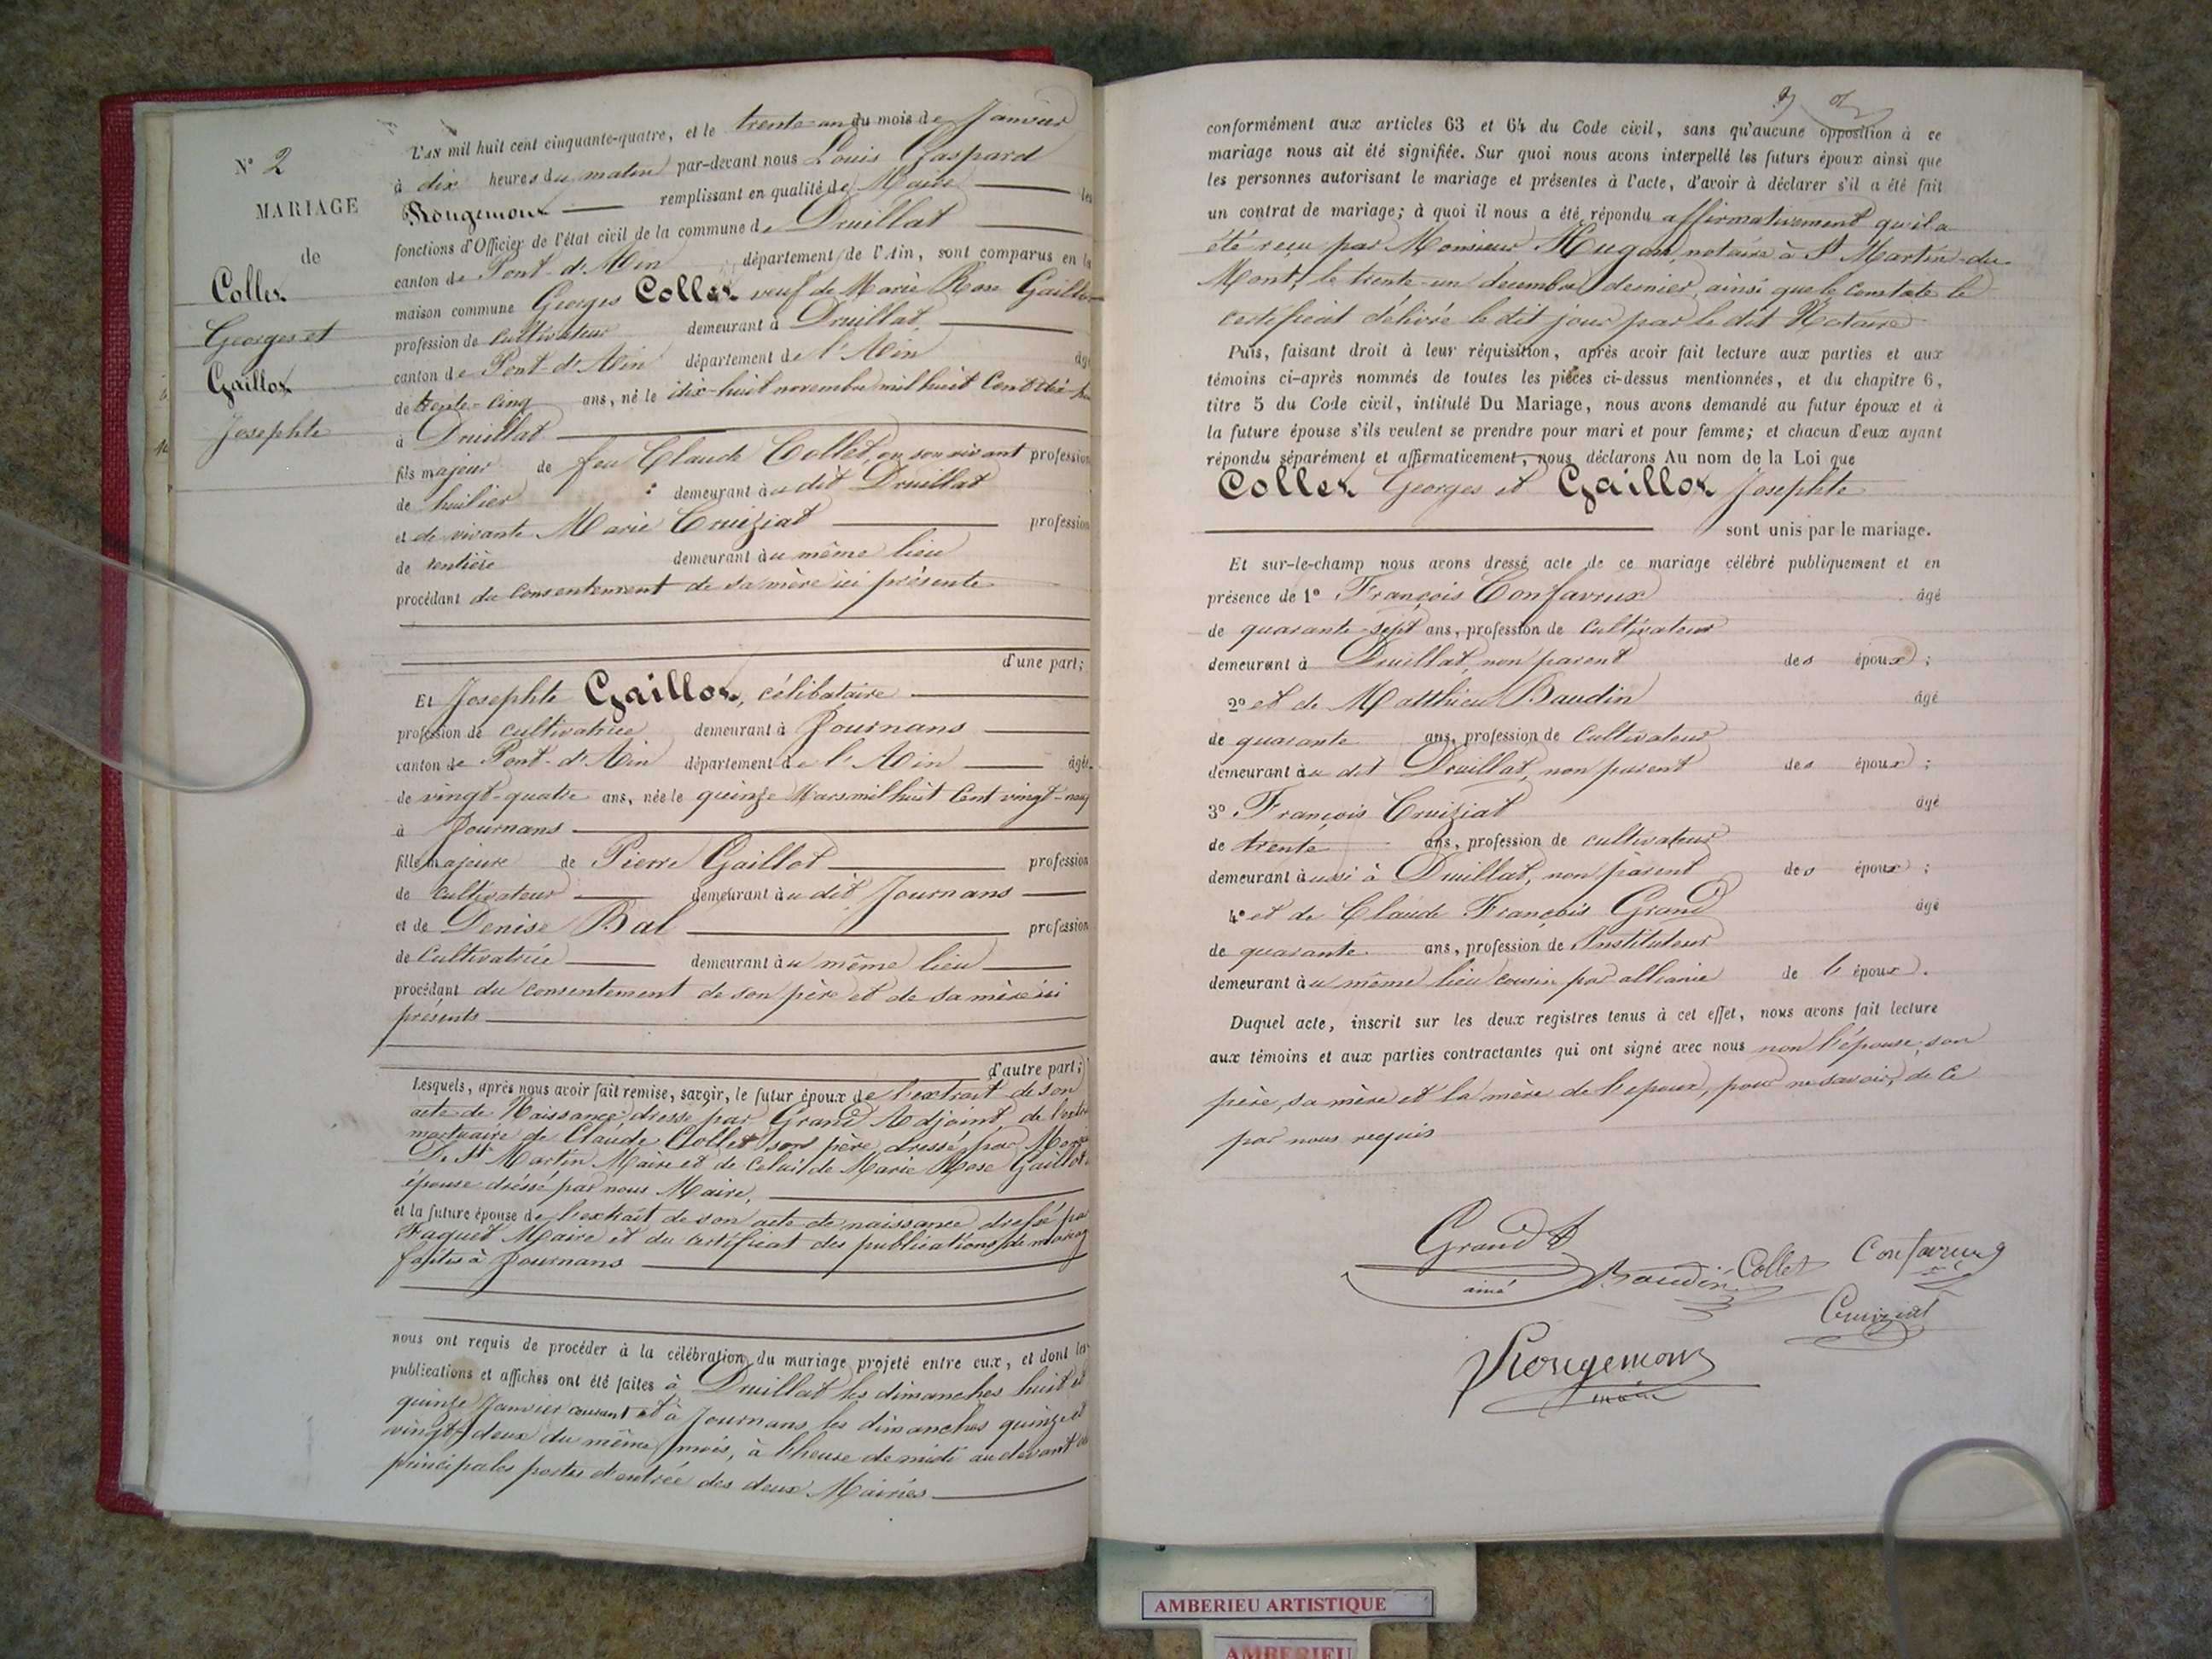 N° 2
MARIAGE
de
Collet
Georges et
Gaillot
Josephte
L'an mil huit cent cinquante-quatre, et le trente-un du mois de Janvier
à dix heures du matin par-devant nous Louis Gaspard
Rougemont remplissant en qualité de Maire les
fonctions d'Officier de l'état civil de la commune de Druillat
canton de Pont-d'Ain département de l'Ain, sont comparus en la
maison commune Georges Collet veuf de Marie Rose Gaillot
profession de cultivateur demeurant à Druillat,
canton de Pont-d'Ain département de l'Ain âgé
de trente-cinq ans, né le dix-huit novembre mil huit Cent dix-
à Druillat
fils majeur de feu Claude Collet, en son vivant profession
de huilier demeurant au dit Druillat
et de vivante Marie Cruiziat profession
de rentière demeurant au même lieu
procédant du consentement de sa mère ici présente
d'une part;
Et Josephte Gaillot, célibataire
profession de cultivatrice demeurant à Journans
canton de Pont-d'Ain département de l'Ain âgée
de vingt-quatre ans, née le quinze Mars mil huit Cent vingt-neuf
à Journans
fille majeure de Pierre Gaillot profession
de cultivateur demeurant au dit Journans
et de Denise Bal profession
de Cultivatrice demeurant au même lieu
procédant du consentement de son père et de sa mère ici
présents
d'autre part;
Lesquels, après nous avoir fait remise, savoir, le futur époux de l'extrait de son
acte de Naissance dressé par Grand Adjoint, de l'extrait
mortuaire de Claude Collet son père dressé par
De St Martin Maire et de Celui de Marie Rose Gaillot
épouse dressé par nous Maire,
et la future épouse de l'extrait de son acte de naissance dressé par
Faquet Maire et du certificat des publications de mariage
faites à Journans
nous ont requis de procéder à la célébration du mariage projeté entre eux, et dont les
publications et affiches ont été faites à Druillat les dimanches huit et
quinze Janvier courant et à Journans les dimanches quinze et
vingt-deux du même mois, à l'heure de midi au devant des
principales portes d'entrée des deux Mairies
conformément aux articles 63 et 64 du Code civil, sans qu'aucune opposition à ce
mariage nous ait été signifiée. Sur quoi nous avons interpellé les futurs époux ainsi que
les personnes autorisant le mariage et présentes à l'acte, d'avoir à déclarer s'il a été fait
un contrat de mariage; à quoi il nous a été répondu affirmativement qu'il a
été reçu par Monsieur Hugon, notaire à St Martin-du-
Mont, le trente-un décembre dernier, ainsi que le Constate le
certificat délivré le dit jour par le dit Notaire
Puis, faisant droit à leur réquisition, après avoir fait lecture aux parties et aux
témoins ci-après nommés de toutes les pièces ci-dessus mentionnées, et du chapitre 6,
titre 5 du Code civil, intitulé Du Mariage, nous avons demandé au futur époux et à
la future épouse s'ils veulent se prendre pour mari et pour femme; et chacun d'eux ayant
répondu séparément et affirmativement, nous déclarons Au nom de la Loi que
Collet Georges et Gaillot Josephte
sont unis par le mariage.
Et sur-le-champ nous avons dressé acte de ce mariage célébré publiquement et en
présence de 1° François Confavreux âgé
de quarante-sept ans, profession de Cultivateur
demeurant à Druillat, non parent des époux;
2° et de Matthieu Baudin âgé
de quarante ans, profession de Cultivateur
demeurant au dit Druillat, non parent des époux;
3° François Cruiziat âgé
de trente ans, profession de cultivateur
demeurant aussi à Druillat, non parent des époux;
4° et de Claude François Grand âgé
de quarante ans, profession de Instituteur
demeurant au même lieu cousin par alliance de l'époux.
Duquel acte, inscrit sur les deux registres tenus à cet effet, nous avons fait lecture
aux témoins et aux parties contractantes qui ont signé avec nous non l'épouse, son
père, sa mère et la mère de l'époux, pour ne savoir, de ce
par nous requis
Grand
ainé
Baudin
Collet
Confavreux
Cruiziat
Rougemont
maire
AMBERIEU ARTISTIQUE
AMBERIEU